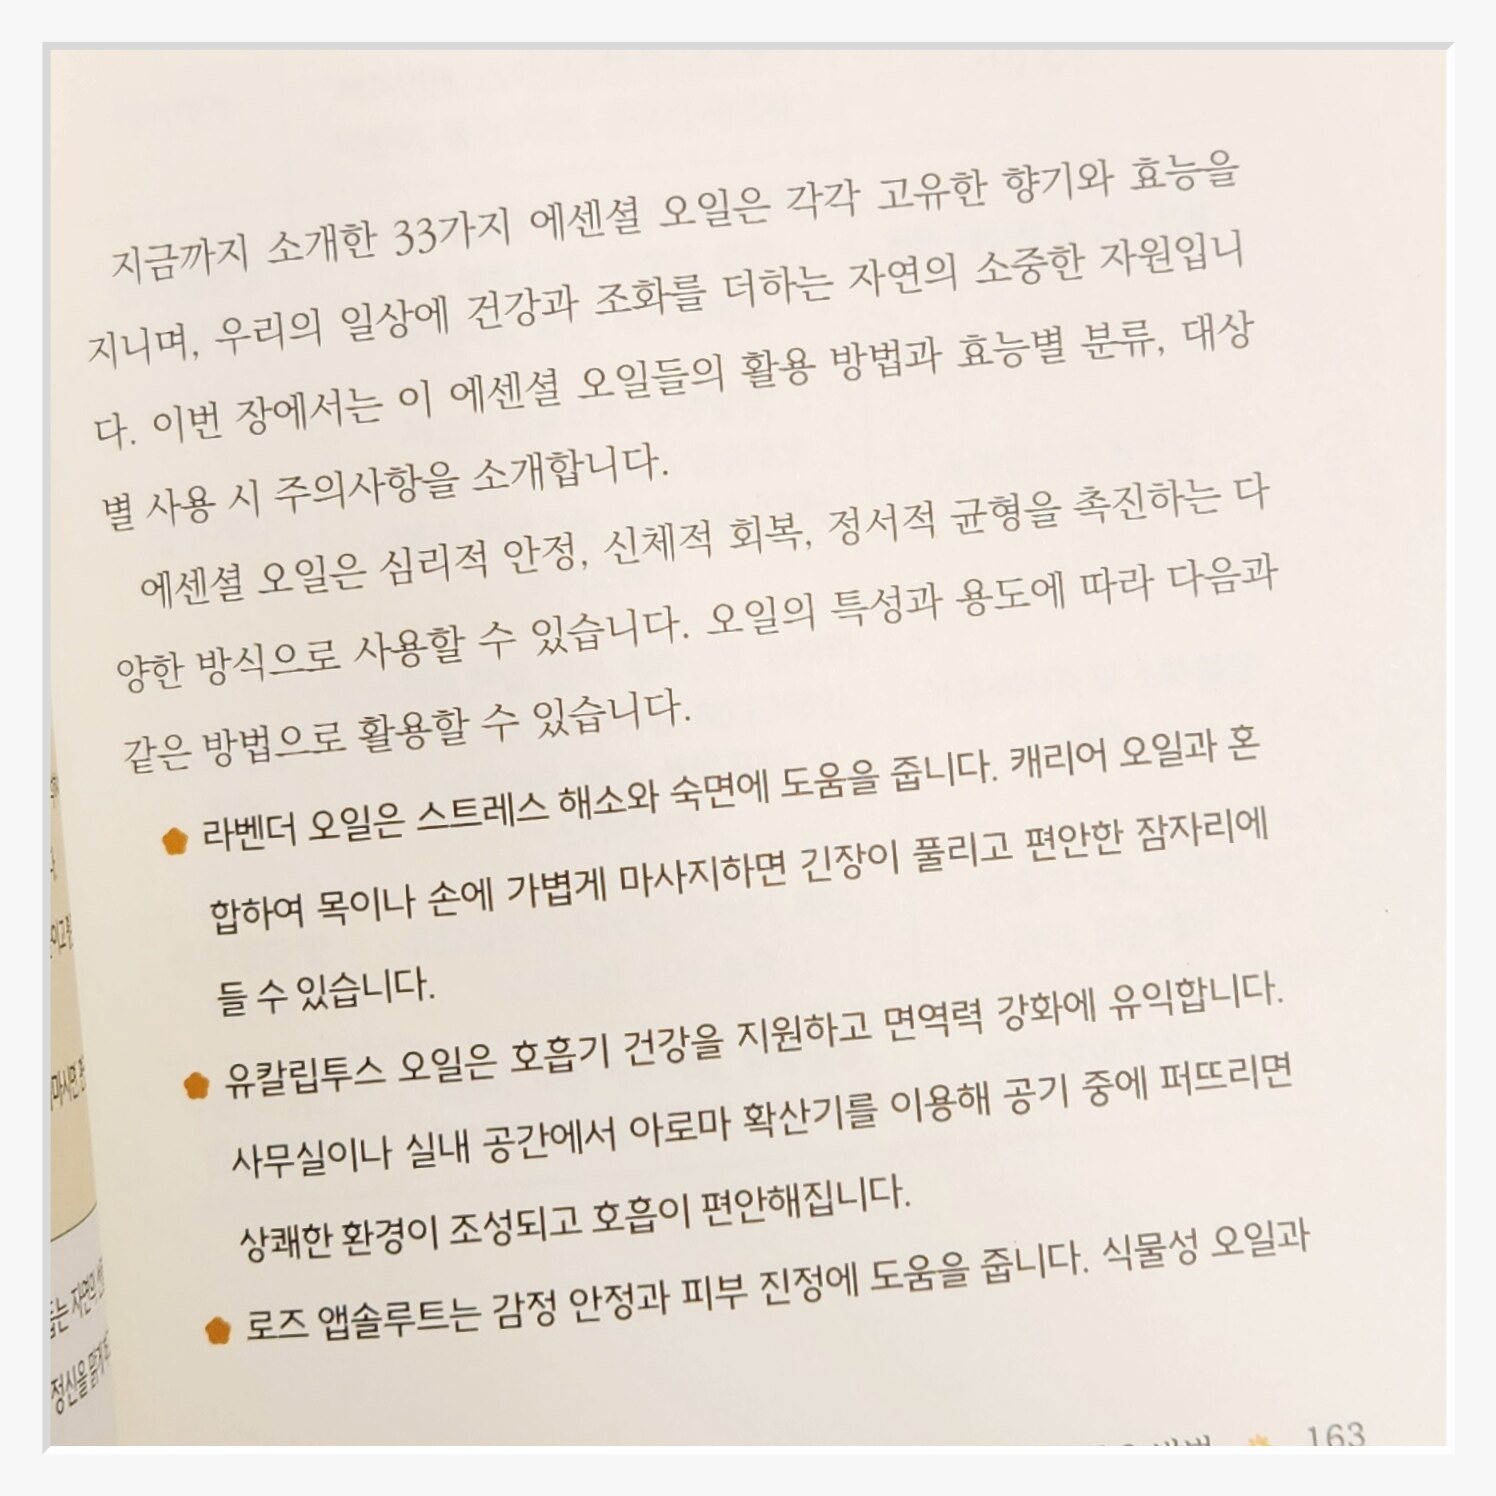 지금까지 소개한 33가지 에센셜 오일은 각각 고유한 향기와 효능을
지니며, 우리의 일상에 건강과 조화를 더하는 자연의 소중한 자원입니
다. 이번 장에서는 이 에센셜 오일들의 활용 방법과 효능별 분류, 대상
별 사용 시 주의사항을 소개합니다.
에센셜 오일은 심리적 안정, 신체적 회복, 정서적 균형을 촉진하는 다
양한 방식으로 사용할 수 있습니다. 오일의 특성과 용도에 따라 다음과
같은 방법으로 활용할 수 있습니다.
라벤더 오일은 스트레스 해소와 숙면에 도움을 줍니다. 캐리어 오일과 혼
합하여 목이나 손에 가볍게 마사지하면 긴장이 풀리고 편안한 잠자리에
들 수 있습니다.
유칼립투스 오일은 호흡기 건강을 지원하고 면역력 강화에 유익합니다.
사무실이나 실내 공간에서 아로마 확산기를 이용해 공기 중에 퍼뜨리면
상쾌한 환경이 조성되고 호흡이 편안해집니다.
로즈 앱솔루트는 감정 안정과 피부 진정에 도움을 줍니다. 식물성 오일과
163